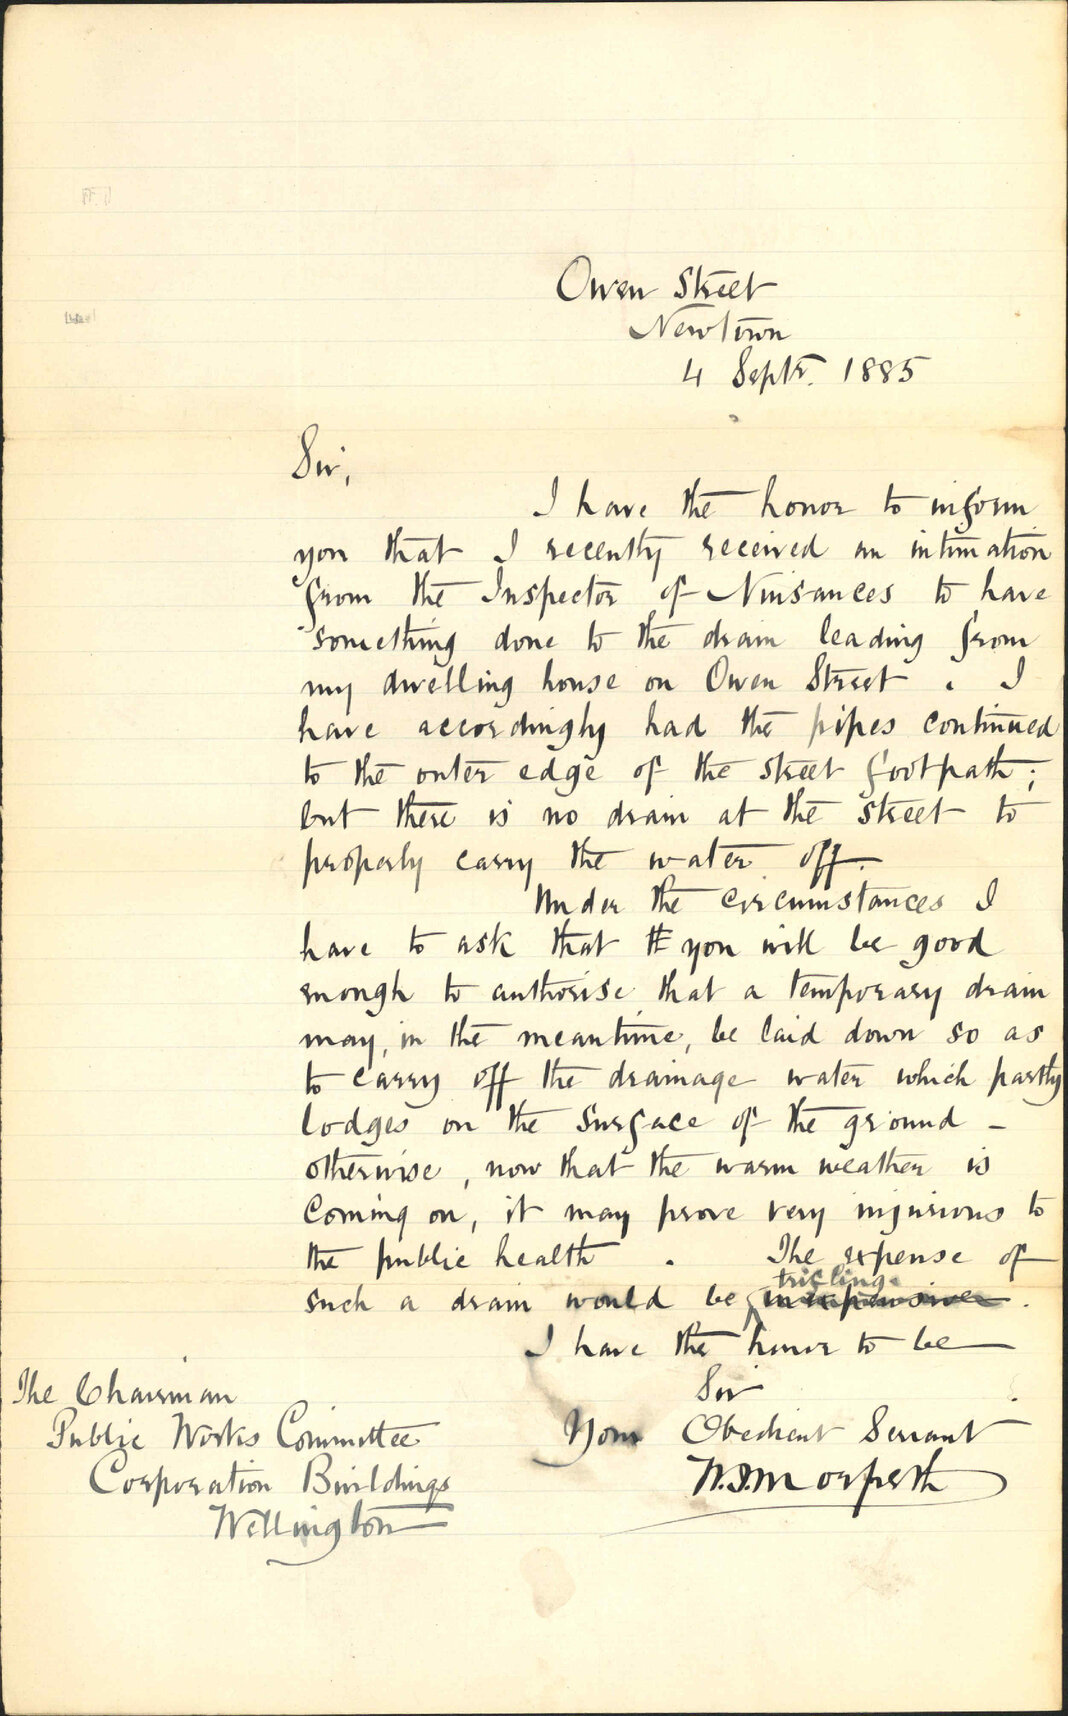 Owen Street
Newtown
4 Septr. 1885
Sir,
I have the honor to inform
you that I recently received an intimation
from the Inspector of Nuisances to have
something done to the drain leading from
my dwelling house on Owen Street. I
have accordingly had the pipes continued
to the outer edge of the street footpath;
but there is no drain at the street to
properly carry the water off.
Under the circumstances I
have to ask that you will be good
enough to authorise that a temporary drain
may, in the meantime, be laid down so as
to carry off the drainage water which partly
lodges on the surface of the ground –
otherwise, now that the warm weather is
coming on, it may prove very injurious to
the public health. The expense of
trifling.
such a drain would be inexpensive.
I have the honor to be
Sir
Your Obedient Servant
W.S. Morpeth
The Chairman
Public Works Committee
Corporation Buildings
Wellington